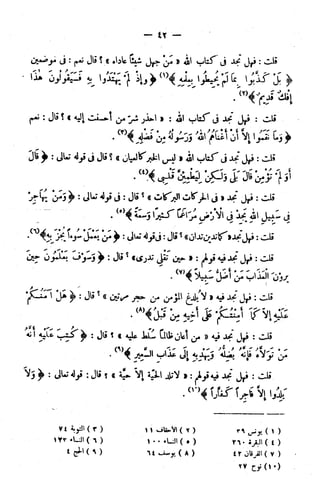 — ٤٢ —
قلت : فهل تجد فى كتاب الله « مَنْ جهل شيئاً عاداه » ؟ قال نعم : فى موضعين
﴿ بَلْ كَذَّبُوا بِمَا لَمْ يُحِيطُوا بِعِلْمِهِ ﴾(١) ﴿ وَإِذْ لَمْ يَهْتَدُوا بِهِ فَسَيَقُولُونَ هَٰذَا
إِفْكٌ قَدِيمٌ ﴾(٢) .
قلت : فهل تجد فى كتاب الله : « احذر شرّ من أحسنت إليه » ؟ قال : نعم
﴿ وَمَا نَقَمُوا إِلاَّ أَنْ أَغْنَاهُمُ اللهُ وَرَسُولُهُ مِنْ فَضْلِهِ ﴾(٣) .
قلت : فهل تجد فى كتاب الله « ليس الخبر كالعيان » ؟ قال فى قوله تعالى : ﴿ قَالَ
أَوَ لَمْ تُؤْمِنْ قَالَ بَلَى وَلَكِنْ لِيَطْمَئِنَّ قَلْبِى ﴾(٤) .
قلت : فهل تجد « فى الحركات البركات » ؟ قال : فى قوله تعالى : ﴿ وَمَنْ يُهَاجِرْ
فِى سَبِيلِ اللهِ يَجِدْ فِى الْأَرْضِ مُرَاغَمًا كَثِيرًا وَسَعَةً ﴾(٥) .
قلت : فهل تجد « كما تدين تدان » ؟ قال : فى قوله تعالى : ﴿ مَنْ يَعْمَلْ سُوءًا يُجْزَ بِهِ ﴾(٦) .
قلت : فهل تجد فيه قولهم : « حين تَقْلِى تدرى » ؟ قال : ﴿ وَسَوْفَ يَعْلَمُونَ حِينَ
يَرَوْنَ الْعَذَابَ مَنْ أَضَلُّ سَبِيلاً ﴾(٧) .
قلت : فهل تجد فيه « لا يُلدغ المؤمن من جحر مرتين » ؟ قال : ﴿ هَلْ آمَنُكُمْ
عَلَيْهِ إِلاَّ كَمَا أَمِنْتُكُمْ عَلَى أَخِيهِ مِنْ قَبْلُ ﴾(٨) .
قلت : فهل تجد فيه « من أعان ظالمًا سُلِّط عليه » ؟ قال : ﴿ كُتِبَ عَلَيْهِ أَنَّهُ
مَنْ تَوَلاَّهُ فَأَنَّهُ يُضِلُّهُ وَيَهْدِيهِ إِلَى عَذَابِ السَّعِيرِ ﴾(٩) .
قلت : فهل تجد فيه قولهم : « لا تلد الحَيّة إلاّ حيّة » ؟ قال : قوله تعالى : ﴿ وَلاَ
يَلِدُوا إِلاَّ فَاجِرًا كَفَّارًا ﴾(١٠) .
(١) يونس ٣٩ (٢) الأحقاف ١١ (٣) التوبة ٧٤
(٤) البقرة ٢٦٠ (٥) النساء ١٠٠ (٦) النساء ١٢٣
(٧) الفرقان ٤٢ (٨) يوسف ٦٤ (٩) الحج ٤
(١٠) نوح ٢٧